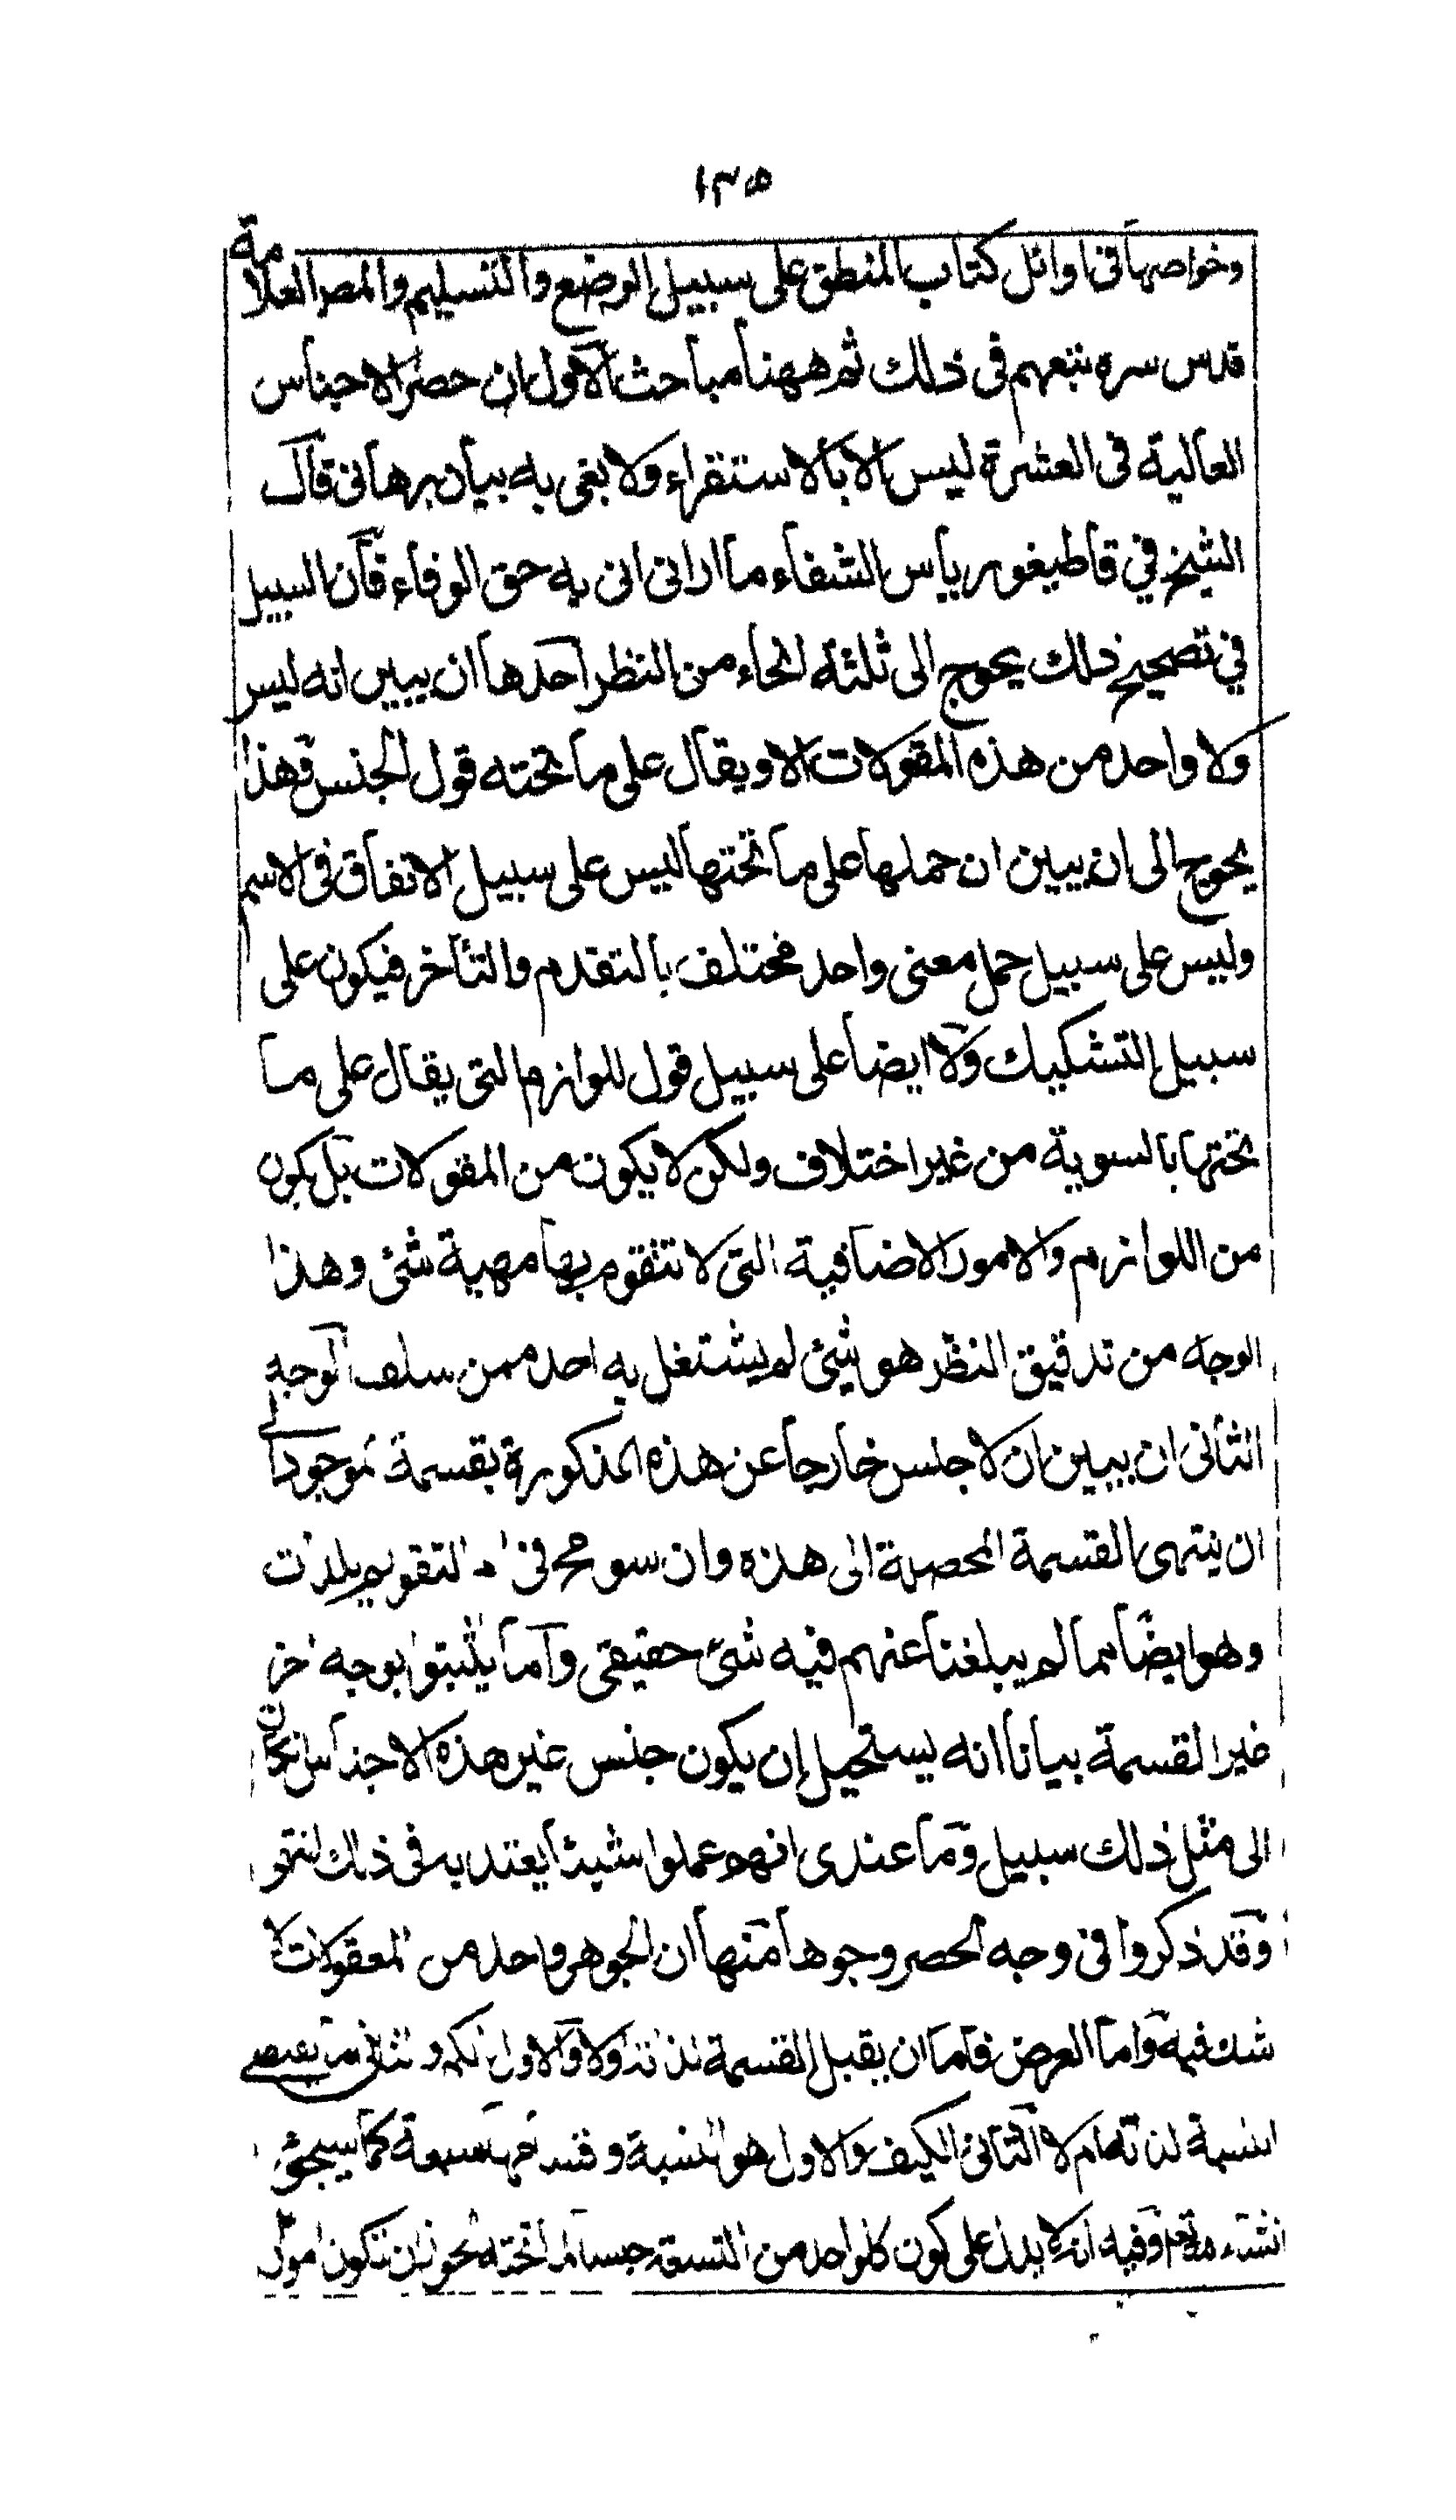 ١٢٥
وخواصها في اوائل كتاب المنطق على سبيل الوضع والتسليم والمصر العلامة
قدس سره تبعهم في ذلك ثم ههنا مباحث الاول ان حصر الاجناس
العالية في العشرة ليس الا بالاستقراء ولا بغى به بيان برهاني قال
الشيخ في قاطيغورياس الشفاء ما اراني اني به حق الوفاء فان السبيل
في تصحيح ذلك يحوج الى ثلثة انحاء من النظر احدها ان يبين انه ليس
ولا واحد من هذه المقولات الا ويقال على ما تحته قول الجنس فهذا
يحوج الى ان يبين ان حملها على ما تحتها ليس على سبيل الاتفاق في الاسم
وليس على سبيل حمل معنى واحد مختلف بالتقدم والتأخر فيكون على
سبيل التشكيك ولا ايضا على سبيل قول للوازم التي يقال على ما
تحتها بالسوية من غير اختلاف ولكن لا يكون من المقولات بل يكون
من اللوازم والامور الاضافية التي لا تتقوم بها مهية شئ وهذا
الوجه من تدقيق النظر هو شئ لم يشتغل به احد ممن سلف الوجه
الثاني ان يبين ان لا جنس خارجا عن هذه المذكورة بقسمة لموجود الى
ان ينتهى القسمة المحصلة الى هذه وان سومح في التقويم بلذات
وهو ايضا مما لم يبلغنا عنهم فيه شئ حقيقى واما يثبتوا بوجه اخر
غير القسمة بيانا انه يستحيل ان يكون جنس غير هذه الاجناس ان كان
الى مثل ذلك سبيل وما عندى انهم عملوا شيئا يعتد به في ذلك انتهى
وقد ذكروا في وجه الحصر وجوها منها ان الجوهر واحد من المقولات لا
شك فيه واما العرض فاما ان يقبل القسمة لذاته اولا والاول الكم و الثانى اما يقتضى
النسبة لذاته ام لا الثانى الكيف والاول هو النسبة و سبعة كما سيجئ
انشاء وفيه انه لا يدل على كون كل واحد من التسعة جنسا لما تحته لجواز ان تكون امور